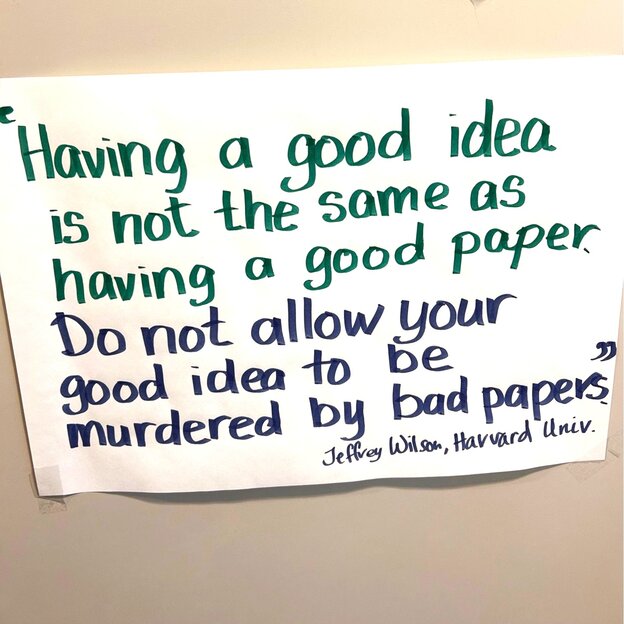 "Having a good idea
is not the same as
having a good paper.
Do not allow your
good idea to be
murdered by bad papers."
Jeffrey Wilson, Harvard Univ.